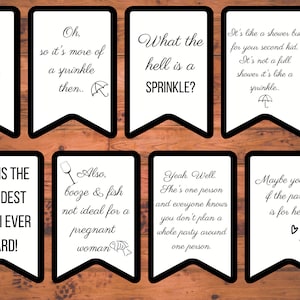 Oh,
so it's more of
a sprinkle
then..
What the
hell is a
SPRINKLE?
It's like a shower but
for your second kid.
It's not a full
shower it's like a
sprinkle..
IS THE
EVER
Also,
booze & fish
not ideal for a
pregnant
woman
Yeah. Well.
She's one person
and everyone knows
you don't plan a
whole party around
one person.
Maybe you
if the pa
is for he